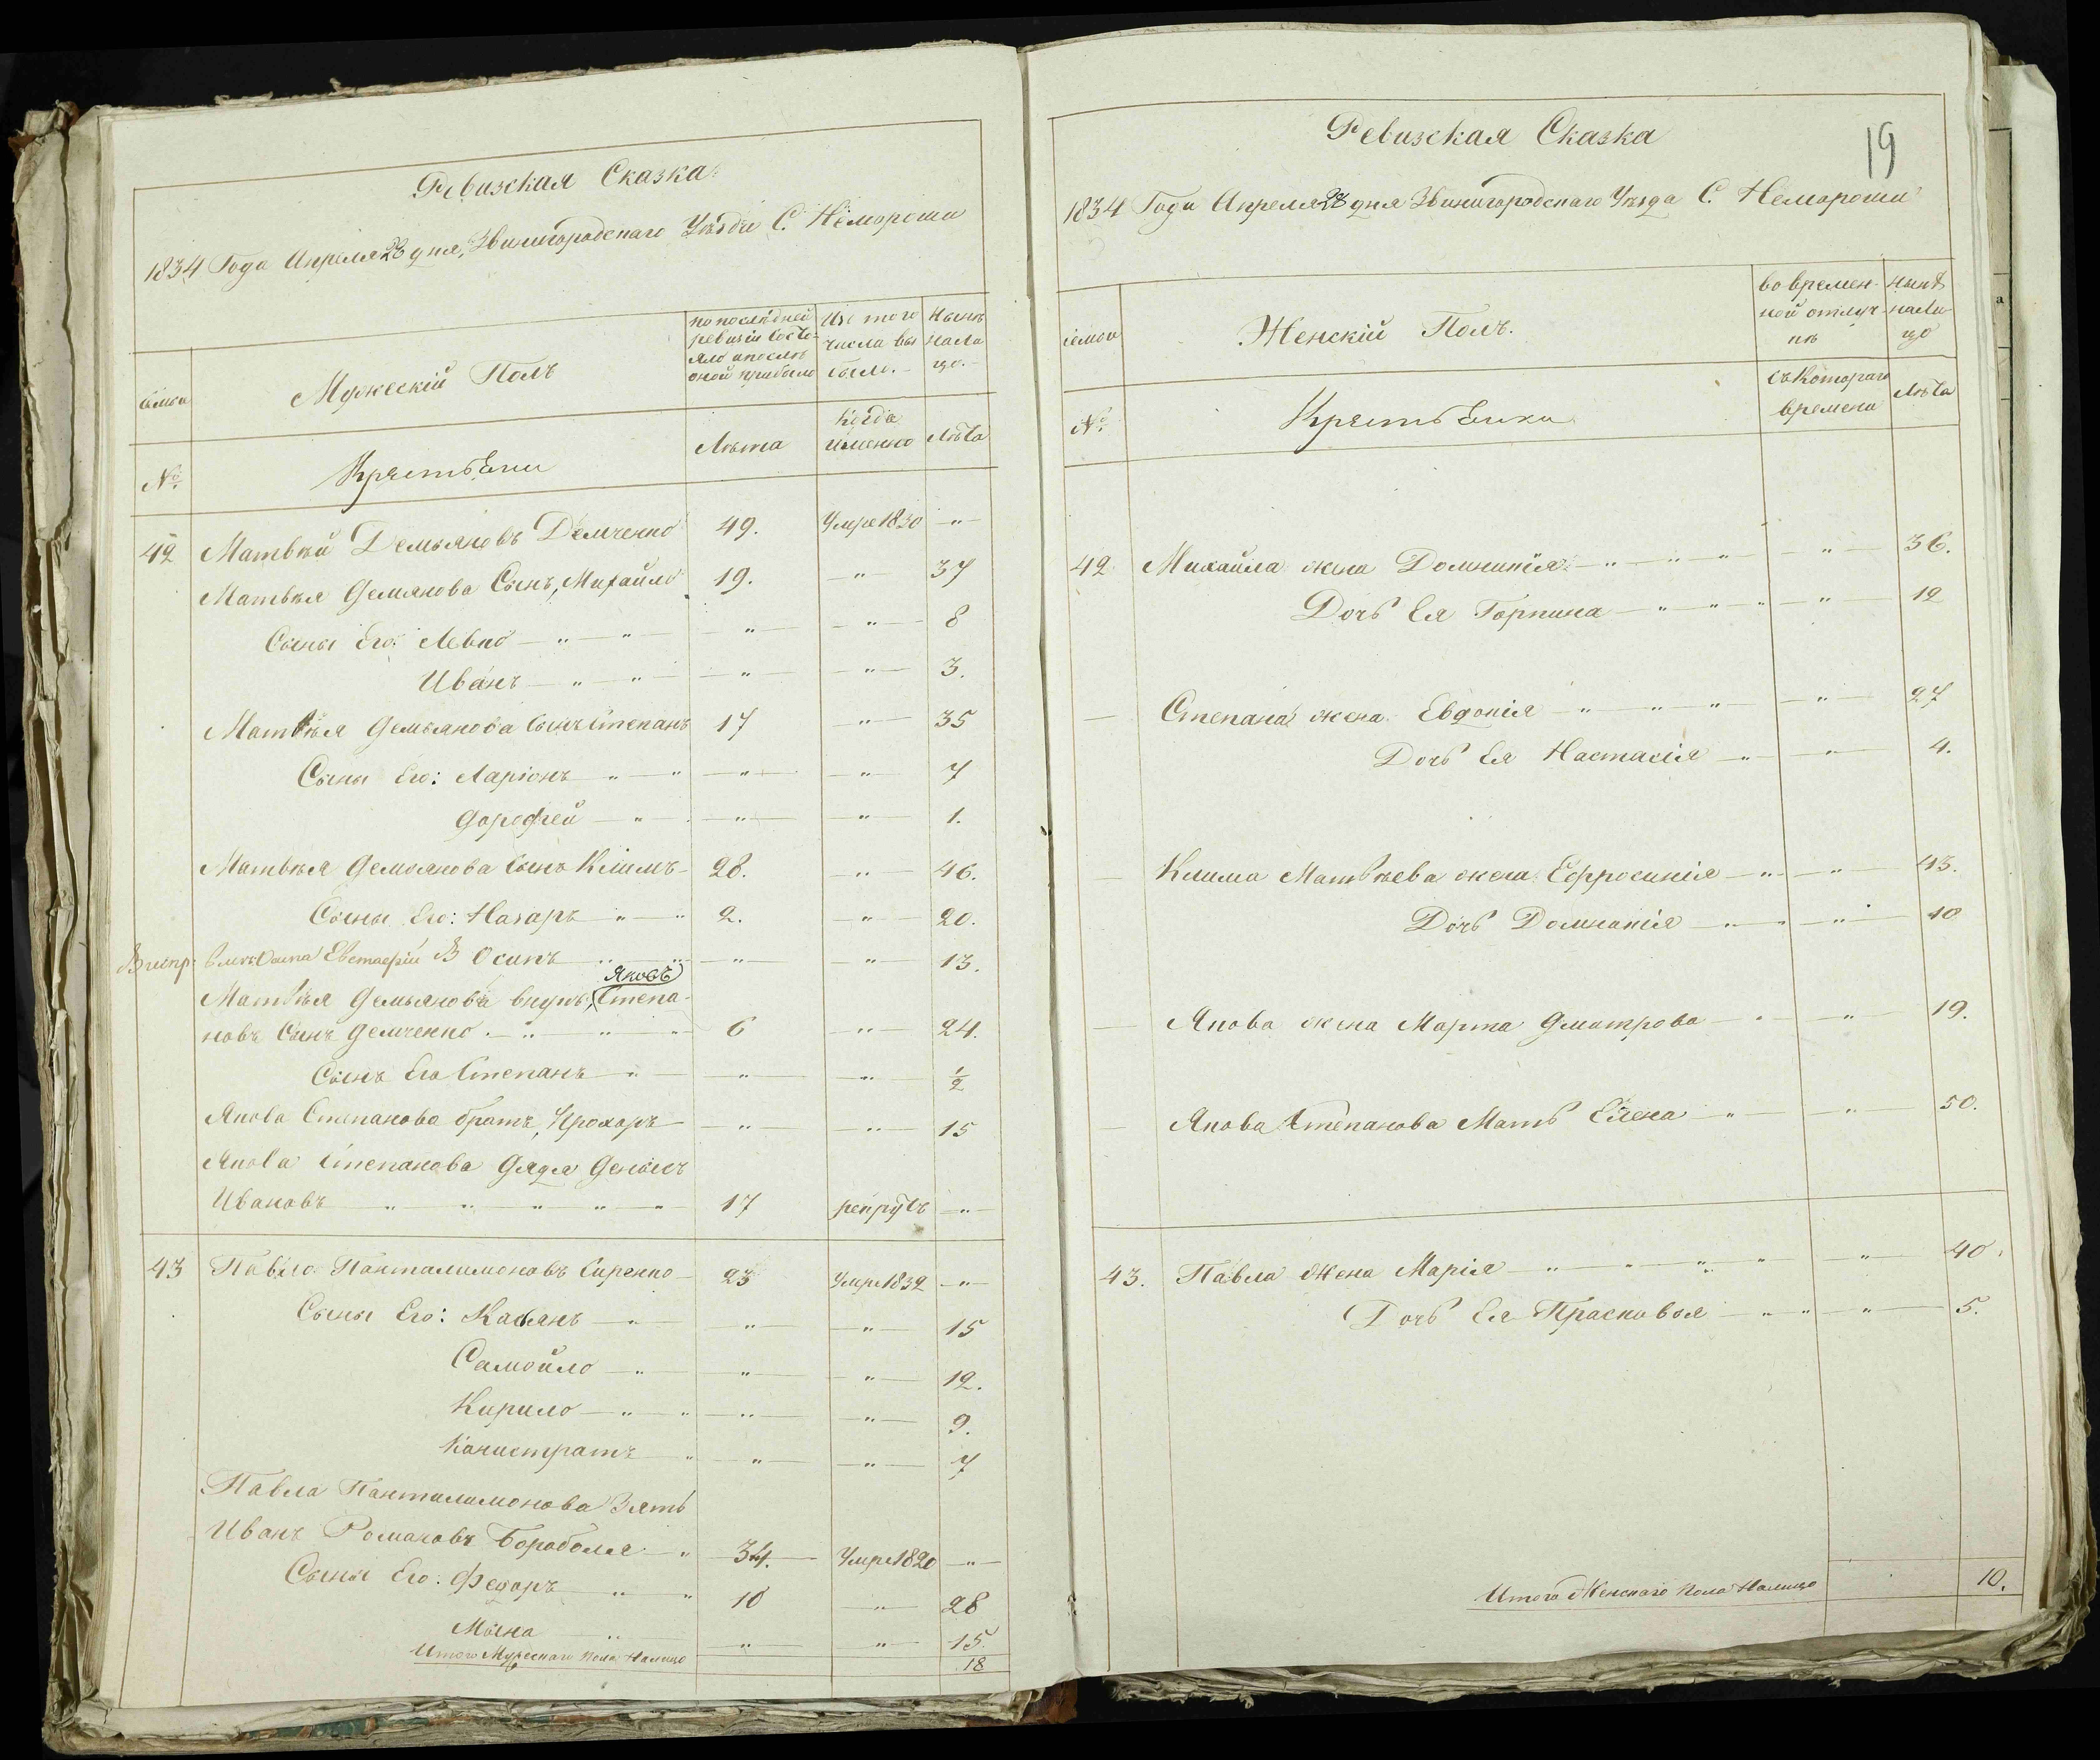 Ревизская Сказка
1834 Года Апреля 28 дня, Звинигородскаго Уѣзда С. Немороши
семьи
Мужескій Полъ
по последней ревизіи состояло и после оной прибыло
Изъ того числа выбыло.
Нынѣ на лицо.
№
Крестьяне
Лѣта
Когда именно
Лѣта
42 Матвѣй Демьяновъ Демченко 49. Умре 1830 - " -
Матвѣя Демянова Сынъ, Михайло 19. " 37
Сыны Его: Левко " " " " 8
Иванъ " " " " 3.
Матвѣя Демьянова Сынъ Степанъ 17 " 35
Сыны Его: Ларіонъ " " " " 7
Дорофей " " " 1.
Матвѣя Демьянова Сынъ Климъ 28. " 46.
Сыны Его: Назаръ " " 2. " 20.
Осипъ " " " " 13.
Яковъ
Матвѣя Демьянова внукъ, Степа-
новъ Сынъ Демченко " " " 6 " 24.
Сынъ Его Степанъ " " " 1/2
Якова Степанова братъ, Прохоръ " " 15
Якова Степанова Дядя Денисъ
Ивановъ " " " " " 17 рекрутъ "
43 Павло Панталимоновъ Сиренко 23 Умре 1832 "
Сыны Его: Касянъ " " " 15
Самойло " " " 12.
Кирило " " " " 9.
Каистратъ " " " 7
Павла Панталимонова Зять
Иванъ Романовъ Бороболя " 34. Умре 1820 "
Сыны Его: Федоръ " " 10 " 28
Мина " " " 15.
Итого Мужескаго пола Налицо 18
Ревизская Сказка
19
1834 Года Апреля 28 дня Звинигородскаго Уѣзда С. Немороши
семьи
Женскій Полъ.
во временной отлучкѣ
нынѣ на лицо
№
Крестьянки
съ котораго времени
Лѣта
42 Михайла жена Домникія " " " " 36.
Дочь Ея Горпина " " " " 12
Степана жена Евдокія " " " " 27
Дочь Ея Настасія " " 4.
Клима Матвѣева жена Ефросинія " " 43.
Дочь Домникія " " " 10
Якова жена Марта Дмитрова " " 19.
Якова Степанова Мать Елена " " 50.
43. Павла Жена Марія " " " " " 40.
Дочь Ея Прасковья " " " 5.
Итого Женскаго пола Налицо 10.